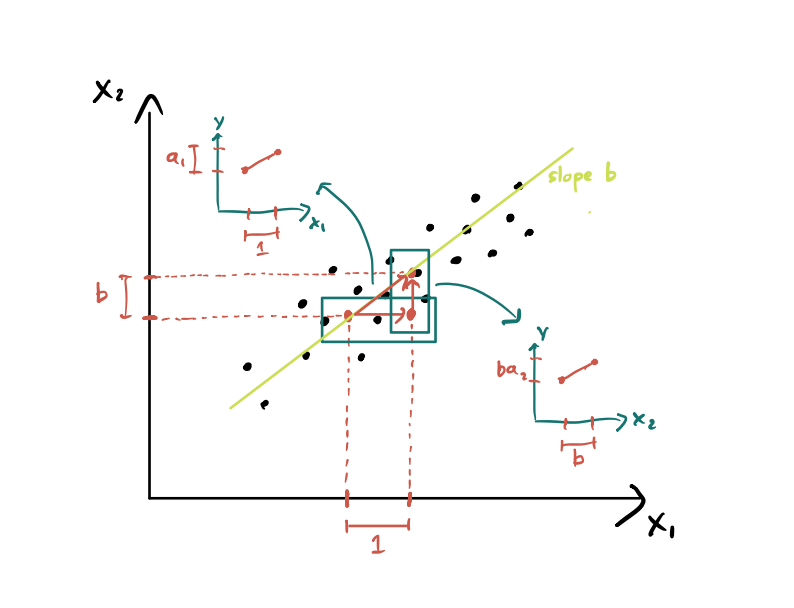 X₂
Y
a₁
x₁
1
slope b
b
Y
ba₂
x₂
b
1
X₁